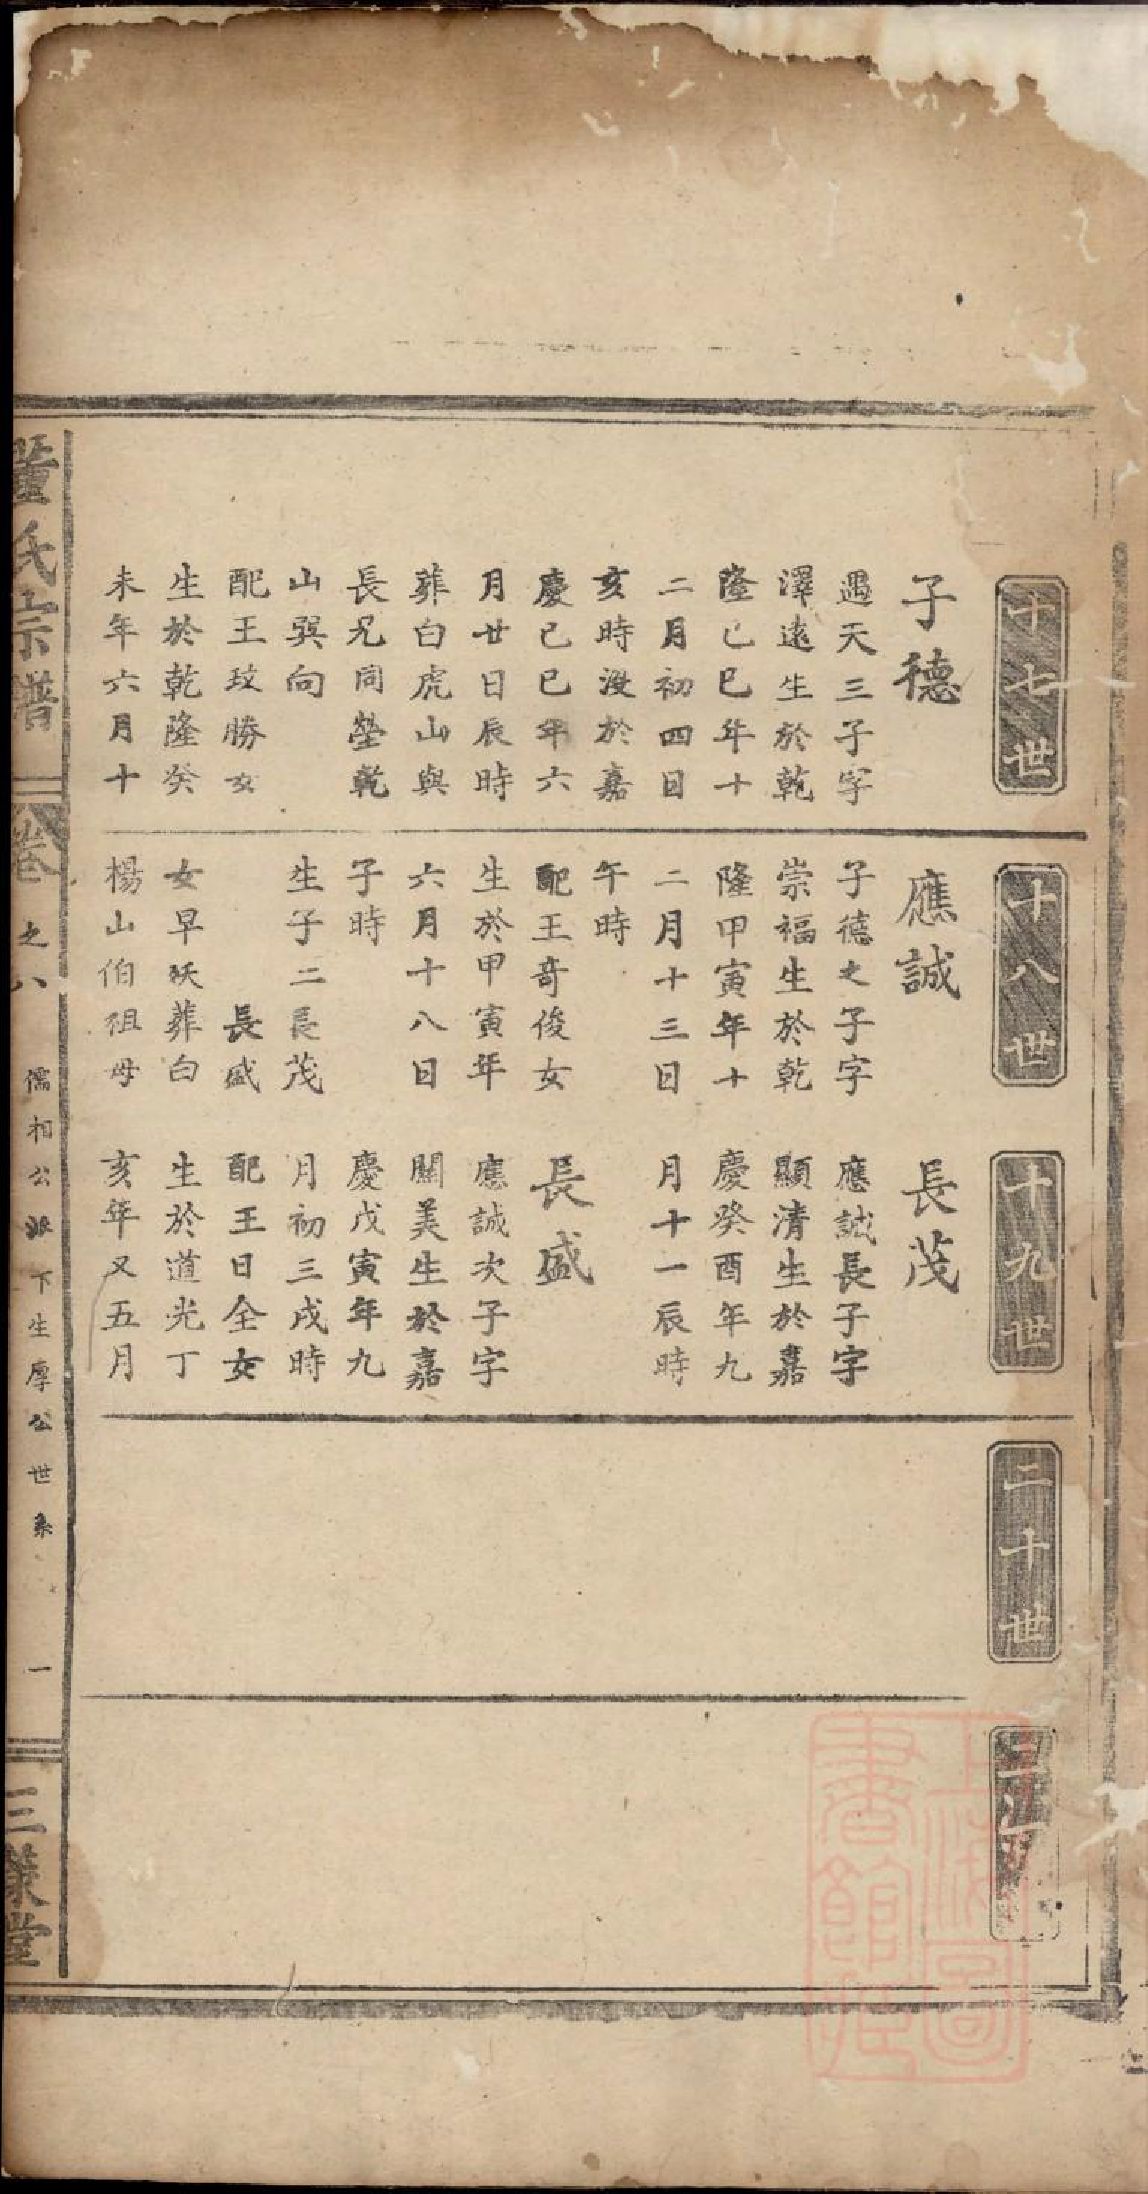 十七世
子德
遇天三子字
澤遠生於乾
隆己巳年十
二月初四日
亥時沒於嘉
慶己巳年六
月廿日辰時
葬白虎山與
長兄同塋乾
山巽向
配王玟勝女
生於乾隆癸
未年六月十
十八世
應誠
子德之子字
崇福生於乾
隆甲寅年十
二月十三日
午時
配王奇俊女
生於甲寅年
六月十八日
子時
生子二長茂
長盛
女早殀葬白
楊山伯祖母
十九世
長茂
應誠長子字
顯清生於嘉
慶癸酉年九
月十一辰時
長盛
應誠次子字
關美生於嘉
慶戊寅年九
月初三戌時
配王日全女
生於道光丁
亥年又五月
二十世
董氏宗譜
卷之八
儒相公派下生厚公世系
一
三策堂
上海圖
書館藏